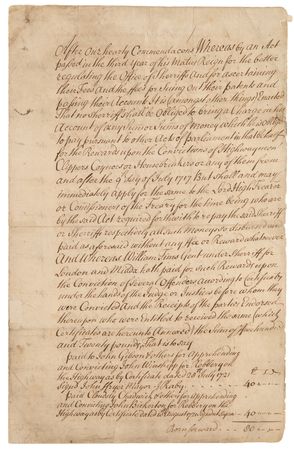 After Our hearty Commendacons Whereas by an Act
passed in the third Year of his Maties Reign for the better
regulating the Office of Sheriffs And for ascertaining
their Fees And the ffees for Suing out their patents and
passing their Accounts It is amongst other things Enacted
That no Sherriff shall be Obliged to bring to Charge in his
Account of any Sum or Sums of money which he is
to pay pursuant to other Acts of Parliament in that behalf
for the Rewards upon the Convictions of Highwaymen
Clippers Coyners or Housebreakers or any of them from
and after the 9th day of July 1717 But shall and may
immediately Apply for the same to the Lord High Treasr
or Comissioners of the Treary for the time being who are
by the said Act required forthwith to repay the said Sherriff
or Sherriffs respectively all such Moneys so disbursed and
paid as aforesaid without any ffee or Reward whatsoever
And Whereas William Sims Gent under Sherriff for
London and Middx hath paid for such Rewards upon
the Conviction of Several Offendors according to Certificates
under the hands of the Judge or Justices before whom they
were Convicted And the Receipts of the parties Endorsed
thereupon who were entitled to received the same (which
Certificates are hereunto Annexed) the Sume of
and Twenty pounds That is to say
paid to John Gibson & others for Apprehending
and Convicting John for Robbery on
the Highway as by Certificate dated 28th July 1721
Signed John ffryer Mayor J Raby 40 -- --
paid Chudley & others for apprehending
and Convicting John for Robbery on the
Highway as by Certificate dated 40 -- --
Born forward 80 -- --